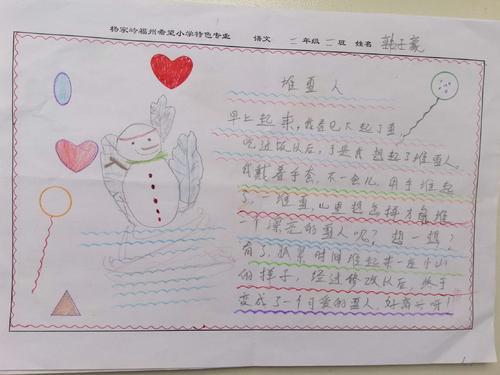 杨家岭福州希望小学特色专业 语文 二年级二班 姓名 韩子豪
堆雪人
早上起来,我看见大起了雪,
吃过饭以后,于是我想起了堆雪人。
我戴着手套,不一会儿,用手堆起
了一堆雪,心里想怎样才能堆
一个漂亮的雪人呢?想一想?
有了,抓紧时间堆起来一座小山
的样子,经过修改以后,终于
变成了一个可爱的雪人,好高兴呀!